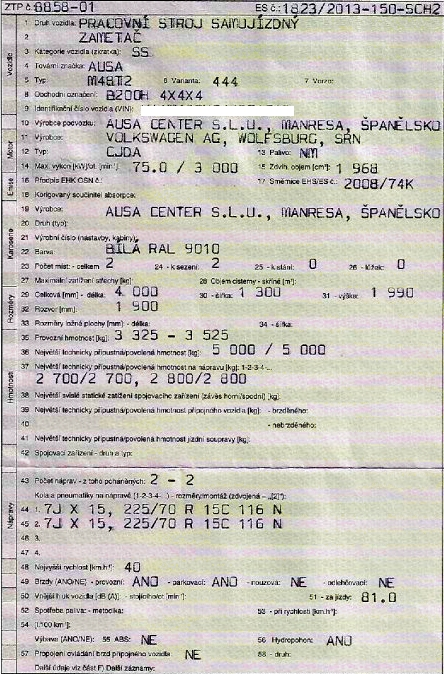 ZTP č. 8858-01 ES č.: 1823/2013-150-SCH2
1 Druh vozidla: PRACOVNÍ STROJ SAMOJÍZDNÝ
2 ZAMETAČ
Vozidlo
3 Kategorie vozidla (zkratka): SS
4 Tovární značka: AUSA
5 Typ: M4BT2 6 Varianta: 444 7 Verze:
8 Obchodní označení: B200H 4X4X4
9 Identifikační číslo vozidla (VIN):
10 Výrobce podvozku: AUSA CENTER S.L.U., MANRESA, ŠPANĚLSKO
Motor
11 Výrobce: VOLKSWAGEN AG, WOLFSBURG, SRN
12 Typ: CJDA 13 Palivo: NM
14 Max. výkon [kW]/ot. [min⁻¹]: 75.0 / 3 000 15 Zdvih. objem [cm³]: 1 968
Emise
16 Předpis EHK OSN č. 17 Směrnice EHS/ES č. 2008/74K
18 Korigovaný součinitel absorpce:
Karoserie
19 Výrobce: AUSA CENTER S.L.U., MANRESA, ŠPANĚLSKO
20 Druh (typ):
21 Výrobní číslo (nástavby, kabiny):
22 Barva BÍLÁ RAL 9010
23 Počet míst: - celkem 2 24 - k sezení: 2 25 - k stání: 0 26 - lůžek: 0
27 Maximální zatížení střechy [kg]: 28 Objem cisterny - skříně [m³]:
Rozměry
29 Celková [mm] - délka: 4 000 30 - šířka: 1 300 31 - výška: 1 990
32 Rozvor [mm]: 1 900
33 Rozměry ložné plochy [mm] - délka: 34 - šířka:
Hmotnosti
35 Provozní hmotnost [kg]: 3 325 - 3 525
36 Největší technicky přípustná/povolená hmotnost [kg]: 5 000 / 5 000
37 Největší technicky přípustná/povolená hmotnost na nápravu [kg]: 1-2-3-4-...
2 700/2 700, 2 800/2 800
38 Největší svislé statické zatížení spojovacího zařízení (závěs horní/spodní) [kg]:
39 Největší technicky přípustná/povolená hmotnost přípojného vozidla [kg]: - brzděného:
40 - nebrzděného:
41 Největší technicky přípustná/povolená hmotnost jízdní soupravy [kg]:
42 Spojovací zařízení - druh a typ:
Nápravy
43 Počet náprav - z toho poháněných: 2 - 2
Kola a pneumatiky na nápravě (1-2-3-4-...) - rozměry/montáž (zdvojená - „[2]“):
44 1. 7J X 15, 225/70 R 15C 116 N
45 2. 7J X 15, 225/70 R 15C 116 N
46 3.
47 4.
48 Nejvyšší rychlost [km.h⁻¹]: 40
49 Brzdy (ANO/NE): - provozní: ANO - parkovací: ANO - nouzová: NE - odlehčovací: NE
50 Vnější hluk vozidla [dB (A)]: - stojící/ot. [min⁻¹]: 51 - za jízdy: 81.0
52 Spotřeba paliva: - metodika: 53 - při rychlosti [km.h⁻¹]:
54 [l.100 km⁻¹]:
Výbava (ANO/NE): 55 ABS: NE 56 Hydropohon: ANO
57 Propojení ovládání brzd přípojného vozidla: NE 58 - druh:
Další údaje viz část F) Další záznamy: